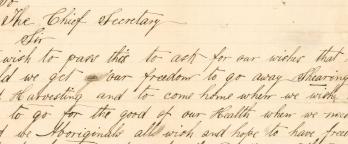 The Chief Secretary
Sir
wish to pass this to ask for our wishes that
ld we get our freedom to go away Shearing
Harvesting and to come home when we wish
to go for the good of our Health when we
be Aboriginals all wish and hope to have free